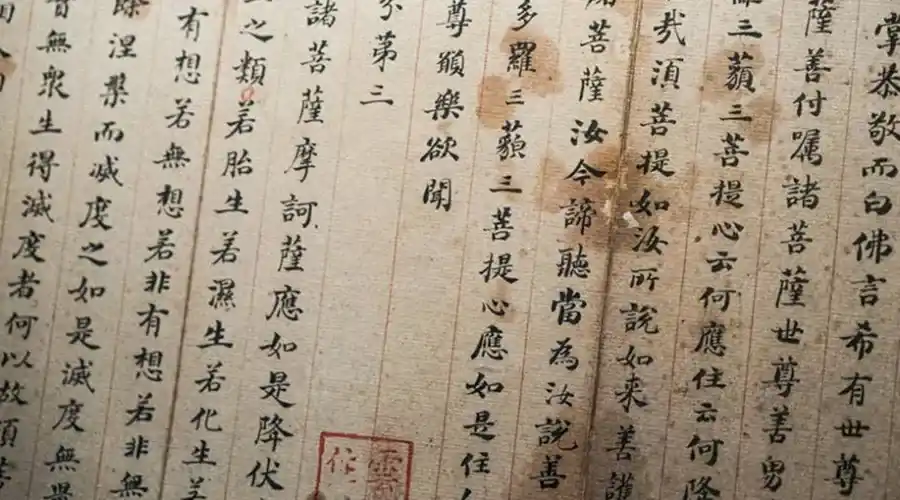 掌恭敬而白佛言希有世尊
薩善付嘱諸菩薩世尊善男
三藐三菩提心云何應住云何降
哉須菩提如汝所說如来善護
菩薩汝今諦聽當為汝說善
多羅三藐三菩提心應如是住
尊願樂欲聞
分第三
諸菩薩摩訶薩應如是降伏
之類若胎生若濕生若化生若
有想若無想若非有想若非無
涅槃而滅度之如是滅度無
無眾生得滅度者何以故須菩
雲